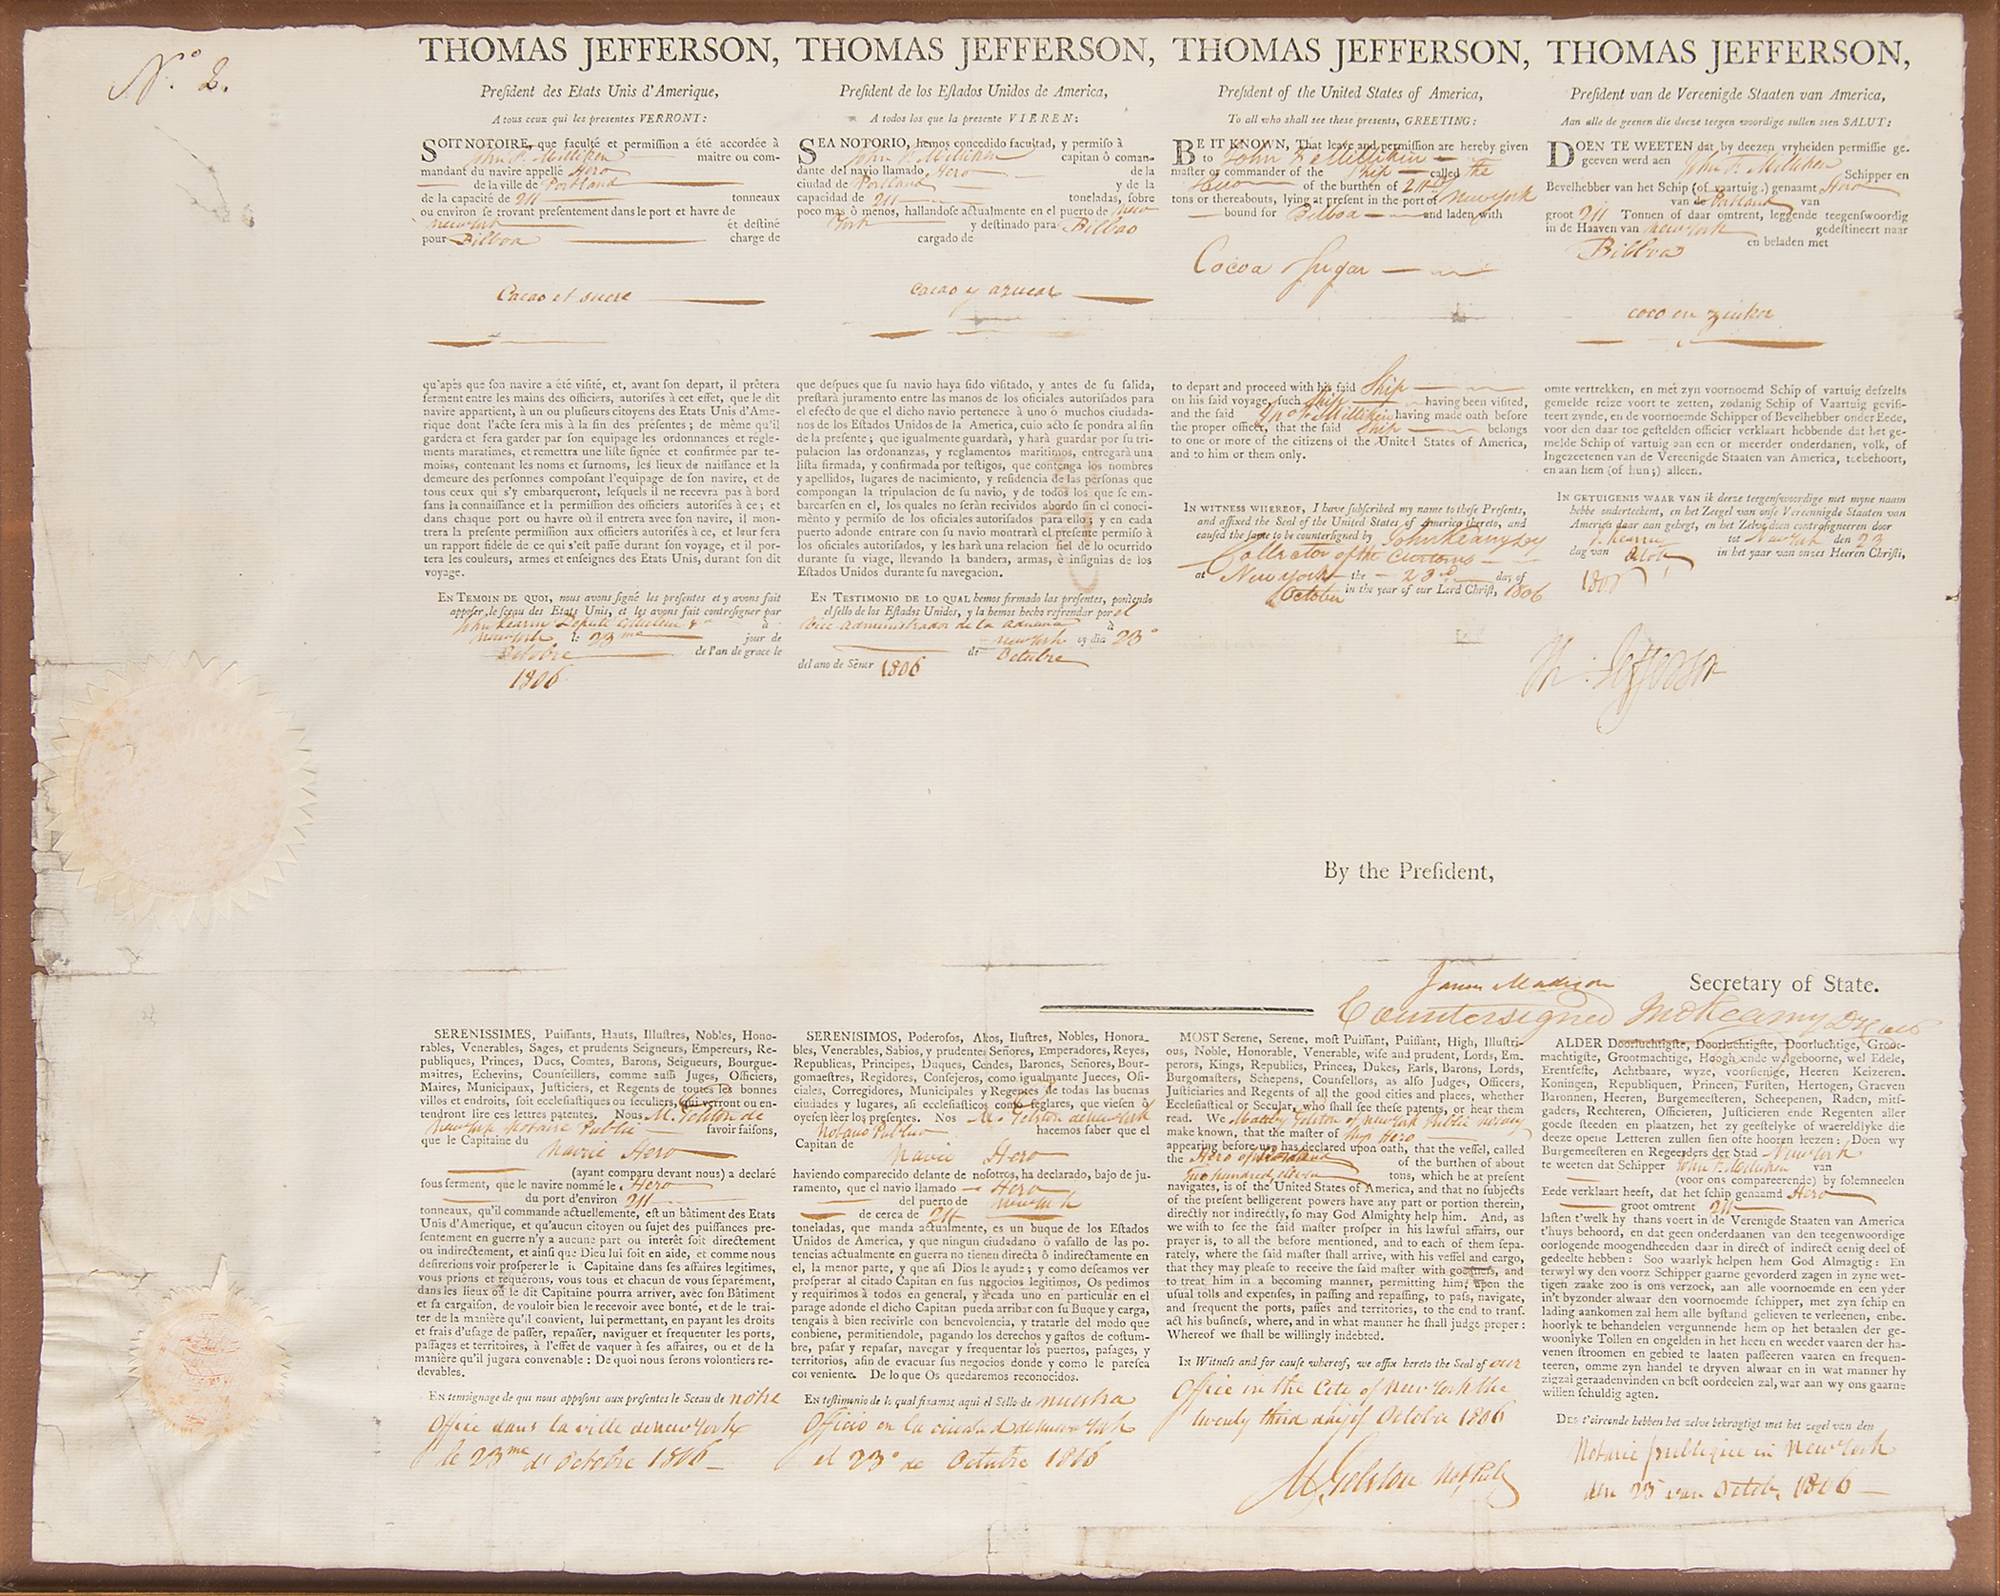 No. 2.
THOMAS JEFFERSON,
President des Etats Unis d'Amerique,
A tous ceux qui les presentes VERRONT:
SOIT NOTOIRE, que faculté et permission a été accordée à
John P. Milliken maitre ou com-
mandant du navire appellé Hero
de la ville de Portland
de la capacité de 211 tonneaux
ou environ se trovant presentement dans le port et havre de
New York ét destiné
pour Bilboa charge de
Cacao et sucre
qu'après que son navire a été visité, et, avant son depart, il prêtera
serment entre les mains des officiers, autorisés à cet effet, que le dit
navire appartient, à un ou plusieurs citoyens des Etats Unis d'Ame-
rique dont l'acte sera mis à la fin des présentes; de même qu'il
gardera et fera garder par son equipage les ordonnances et régle-
ments maratimes, et remettra une liste signée et confirmée par te-
moins, contenant les noms et surnoms, les lieux de naissance et la
demeure des personnes composant l'equipage de son navire, et de
tous ceux qui s'y embarqueront, lesquels il ne recevra pas à bord
sans la connaissance et la permission des officiers autorisés à ce; et
dans chaque port ou havre où il entrera avec son navire, il mon-
trera la presente permission aux officiers autorisés à ce, et leur fera
un rapport fidèle de ce qui s'est passé durant son voyage, et il por-
tera les couleurs, armes et enseignes des Etats Unis, durant son dit
voyage.
EN TEMOIN DE QUOI, nous avons signé les presentes et y avons fait
apposer le sceau des Etats Unis, et les avons fait contresigner par
à
New York le 23me jour de
Octobre de l'an de grace le
1806
THOMAS JEFFERSON,
President de los Estados Unidos de America,
A todos los que la presente VIEREN:
SEA NOTORIO, hemos concedido facultad, y permiso à
John P. Milliken capitan ô coman-
dante del navio llamado Hero de la
ciudad de Portland y de la
capacidad de 211 toneladas, sobre
poco mas ô menos, hallandose actualmente en el puerto de New
York y destinado para Bilbao
cargado de
cacao y azucar
que despues que su navio haya sido visitado, y antes de su salida,
prestará juramento entre las manos de los oficiales autorisados para
el efecto de que el dicho navio pertenece à uno ó muchos ciudada-
nos de los Estados Unidos de la America, cuio acto se pondra al fin
de la presente; que igualmente guardarà, y harà guardar por su tri-
pulacion las ordonanzas, y reglamentos maritimos, entregarà una
lista firmada, y confirmada por testigos, que contenga los nombres
y apellidos, lugares de nacimiento, y residencia de las personas que
compongan la tripulacion de su navio, y de todos los que se em-
barcarsen en el, los quales no seràn recividos abordo sin el conoci-
mènto y permiso de los oficiales autorisados para ello; y en cada
puerto adonde entrare con su navio montrarà el presente permiso à
los oficiales autorisados, y les harà una relacion fiel de lo ocurrido
durante su viage, llevando la bandera, armas, e insignias de los
Estados Unidos durante su navegacion.
EN TESTIMONIO DE LO QUAL hemos firmado las presentes, poniendo
el sello de los Estados Unidos, y la hemos hecho refrendar por el
Vice administrador de la aduana à
New York el dia 23o
de Octubre
del ano de Sènor 1806
THOMAS JEFFERSON,
President of the United States of America,
To all who shall see these presents, GREETING:
BE IT KNOWN, That leave and permission are hereby given
to John P. Milliken
master or commander of the Ship called the
Hero of the burthen of 211
tons or thereabouts, lying at present in the port of New York
bound for Bilboa and laden with
Cocoa Sugar
to depart and proceed with his said Ship
on his said voyage, such Ship having been visited,
and the said Jno P. Milliken having made oath before
the proper officer, that the said Ship belongs
to one or more of the citizens of the United States of America,
and to him or them only.
IN WITNESS WHEREOF, I have subscribed my name to these Presents,
and affixed the Seal of the United States of America thereto, and
caused the same to be countersigned by
Collector of the Customs
at New York the 23rd day of
October in the year of our Lord Christ, 1806
THOMAS JEFFERSON,
President van de Vereenigde Staaten van America,
Aan alle de geenen die deeze teegen woordige sullen sien SALUT:
DOEN TE WEETEN dat by deezen vryheiden permissie ge-
geeven werd aen John P. Milliken Schipper en
Bevelhebber van het Schip (of vaartuig) genaamt Hero
van de Portland van
groot 211 Tonnen of daar omtrent, leggende teegenswoordig
in de Haaven van New York gedestineert naar
Bilboa en beladen met
coco en zuiker
omte vertrekken, en met zyn voornoemd Schip of vartuig deszelfs
gemelde reize voort te zetten, zodanig Schip of Vaartuig gevisi-
teert zynde, en de voornoemde Schipper of Bevelhebber onder Eede,
voor den daar toe gestelden officier verklaart hebbende dat het ge-
melde Schip of vartuig aan een or meerder onderdanen, volk, of
Ingezeetenen van de Vereenigde Staaten van America, toebehoort,
en aan hem (of hun;) alleen.
IN GETUIGENIS WAAR VAN ik deeze teegenswoordige met myne naam
hebbe onderteckent, en het Zeegel van onse Vereenigde Staaten van
America daar aan gehegt, en het Zelve doen contrasigneren door
tot New York den 23
dag van in het jaar van onzes Heeren Christi,
1806
Th: Jefferson
By the President,
James Madison Secretary of State.
Countersigned
SERENISSIMES, Puissants, Hauts, Illustres, Nobles, Hono-
rables, Venerables, Sages, et prudents Seigneurs, Empereurs, Re-
publiques, Princes, Ducs, Comtes, Barons, Seigneurs, Bourgue-
maitres, Echevins, Counseillers, comme aussi Juges, Officiers,
Maires, Municipaux, Justiciers, et Regents de toutes les bonnes
villes et endroits, soit ecclesiastiques ou seculiers, qui verront ou en-
tendront lire ces lettres patentes. Nous M. Gelston de
New York Notaire Public savoir faisons,
que le Capitaine du
Navire Hero
(ayant comparu devant nous) a declaré
sous serment, que le navire nommé le Hero
du port d'environ 211
tonneaux, qu'il commande actuellement, est un bâtiment des Etats
Unis d'Amerique, et qu'aucun citoyen ou sujet des puissances pre-
sentement en guerre n'y a aucune part ou interêt soit directement
ou indirectement, et ainsi que Dieu lui soit en aide, et comme nous
desirerions voir prosperer le Capitaine dans ses affaires legitimes,
vous prions et requérons, vous tous et chacun de vous séparément,
dans les lieux où le dit Capitaine pourra arriver, avec son Bâtiment
et sa cargaison, de vouloir bien le recevoir avec bonté, et de le trai-
ter de la manière qu'il convient, lui permettant, en payant les droits
et frais d'usage de passer, repasser, naviguer et frequenter les ports,
passages et territoires, à l'effet de vaquer à ses affaires, ou et de la
manière qu'il jugera convenable: De quoi nous serons volontiers re-
devables.
En temoignage de qui nous apposons aux presentes le Sceau de notre
Office dans la ville de New York
le 23me d'Octobre 1806
SERENISIMOS, Poderosos, Akos, Ilustres, Nobles, Honora-
bles, Venerables, Sabios, y prudentes Señores, Emperadores, Reyes,
Republicas, Principes, Duques, Condes, Barones, Señores, Bour-
gomaestres, Regidores, Consejeros, como igualmante Jueces, Ofi-
ciales, Corregidores, Municipales y Regentes de todas las buenas
ciudades y lugares, asi ecclesiasticos como seglares, que viesen ô
oyesen lèer los presentes. Nos M. Gelston de New York
Notario Publico hacemos saber que el
Capitan de
Navio Hero
haviendo comparecido delante de nosotros, ha declarado, bajo de ju-
ramento, que el navio llamado Hero
del puerto de New York
de cerca de 211
toneladas, que manda actualmente, es un buque de los Estados
Unidos de America, y que ningun ciudadano ô vasallo de las po-
tencias actualmente en guerra no tienen directa ô indirectamente en
el, la menor parte, y que asi Dios le ayude; y como deseamos ver
prosperar al citado Capitan en sus negocios legitimos, Os pedimos
y requirimos à todos en general, y à cada uno en particular en el
parage adonde el dicho Capitan pueda arribar con su Buque y carga,
tengais à bien recivirle con benevolencia, y tratarle del modo que
conbiene, permitiendole, pagando los derechos y gastos de costum-
bre, pasar y repasar, navegar y frequentar los puertos, pasages, y
territorios, afin de evacuar sus negocios donde y como le paresca
conveniente. De lo que Os quedaremos reconocidos.
En testimonio de lo qual fixamos aqui el Sello de nuestra
Officio en la ciudad de New York
el 23o de Octubre 1806
MOST Serene, Serene, most Puissant, Puissant, High, Illustri-
ous, Noble, Honorable, Venerable, wise and prudent, Lords, Em-
perors, Kings, Republics, Princes, Dukes, Earls, Barons, Lords,
Burgomasters, Schepens, Counsellors, as also Judges, Officers,
Justiciaries and Regents of all the good cities and places, whether
Ecclesiastical or Secular, who shall see these patents, or hear them
read. We Maltby Gelston of New York Public Notary
make known, that the master of Ship Hero
appearing before us, has declared upon oath, that the vessel, called
the Hero of Portland of the burthen of about
Two hundred eleven tons, which he at present
navigates, is of the United States of America, and that no subjects
of the present belligerent powers have any part or portion therein,
directly nor indirectly, so may God Almighty help him. And, as
we wish to see the said master prosper in his lawful affairs, our
prayer is, to all the before mentioned, and to each of them sepa-
rately, where the said master shall arrive, with his vessel and cargo,
that they may please to receive the said master with goodness, and
to treat him in a becoming manner, permitting him, upon the
usual tolls and expenses, in passing and repassing, to pass, navigate,
and frequent the ports, passes and territories, to the end to trans-
act his business, where, and in what manner he shall judge proper:
Whereof we shall be willingly indebted.
In Witness and for cause whereof, we affix hereto the Seal of our
Office in the City of New York the
twenty third day of October 1806
M. Gelston Not. Pub.
ALDER Doorluchtigste, Doorluchtigste, Doorluchtige, Groot-
machtigste, Grootmachtige, Hoogh ende wylgeboorne, wel Edele,
Erentfeste, Achtbaare, wyze, voorsienige, Heeren Keizeren.
Koningen, Republiquen, Princen, Fursten, Hertogen, Graeven
Baronnen, Heeren, Burgemeesteren, Scheepenen, Raden, mits-
gaders, Rechteren, Officieren, Justicieren ende Regenten aller
goede steeden en plaatzen, het zy geestelyke of waereldlyke die
deeze opene Letteren zullen sien ofte hooren leezen: Doen wy
Burgemeesteren en Regeerders der Stad New York
te weeten dat Schipper John P. Milliken van
(voor ons compareerende) by solemneelen
Eede verklaart heeft, dat het schip genaamd Hero
groot omtrent 211
lasten t'welk hy thans voert in de Verenigde Staaten van America
t'huys behoord, en dat geen onderdaanen van den teegenwoordige
oorlogende moogendheeden daar in direct of indirect eenig deel of
gedeelte hebben: Soo waarlyk helpen hem God Almagtig: En
terwyl wy den voorz Schipper gaarne gevorderd zagen in zyne wet-
tigen zaake zoo is ons verzoek, aan alle voornoemde en een yder
in't byzonder alwaar den voornoemde schipper, met zyn schip en
lading aankomen zal hem alle bystand gelieven te verleenen, enbe-
hoorlyk te behandelen vergunnende hem op het betaalen der ge-
woonlyke Tollen en engelden in het heen en weeder vaaren der ha-
venen stroomen en gebied te laaten passeeren vaaren en frequen-
teeren, omme zyn handel te dryven alwaar en in wat manner hy
zigzal geraadenvinden en best oordeelen zal, war aan wy ons gaarne
willen schuldig agten.
Des t'oirconde hebben het zelve bekragtigt met het zegel van den
Notarie publique in New York
den 23 van Octob. 1806